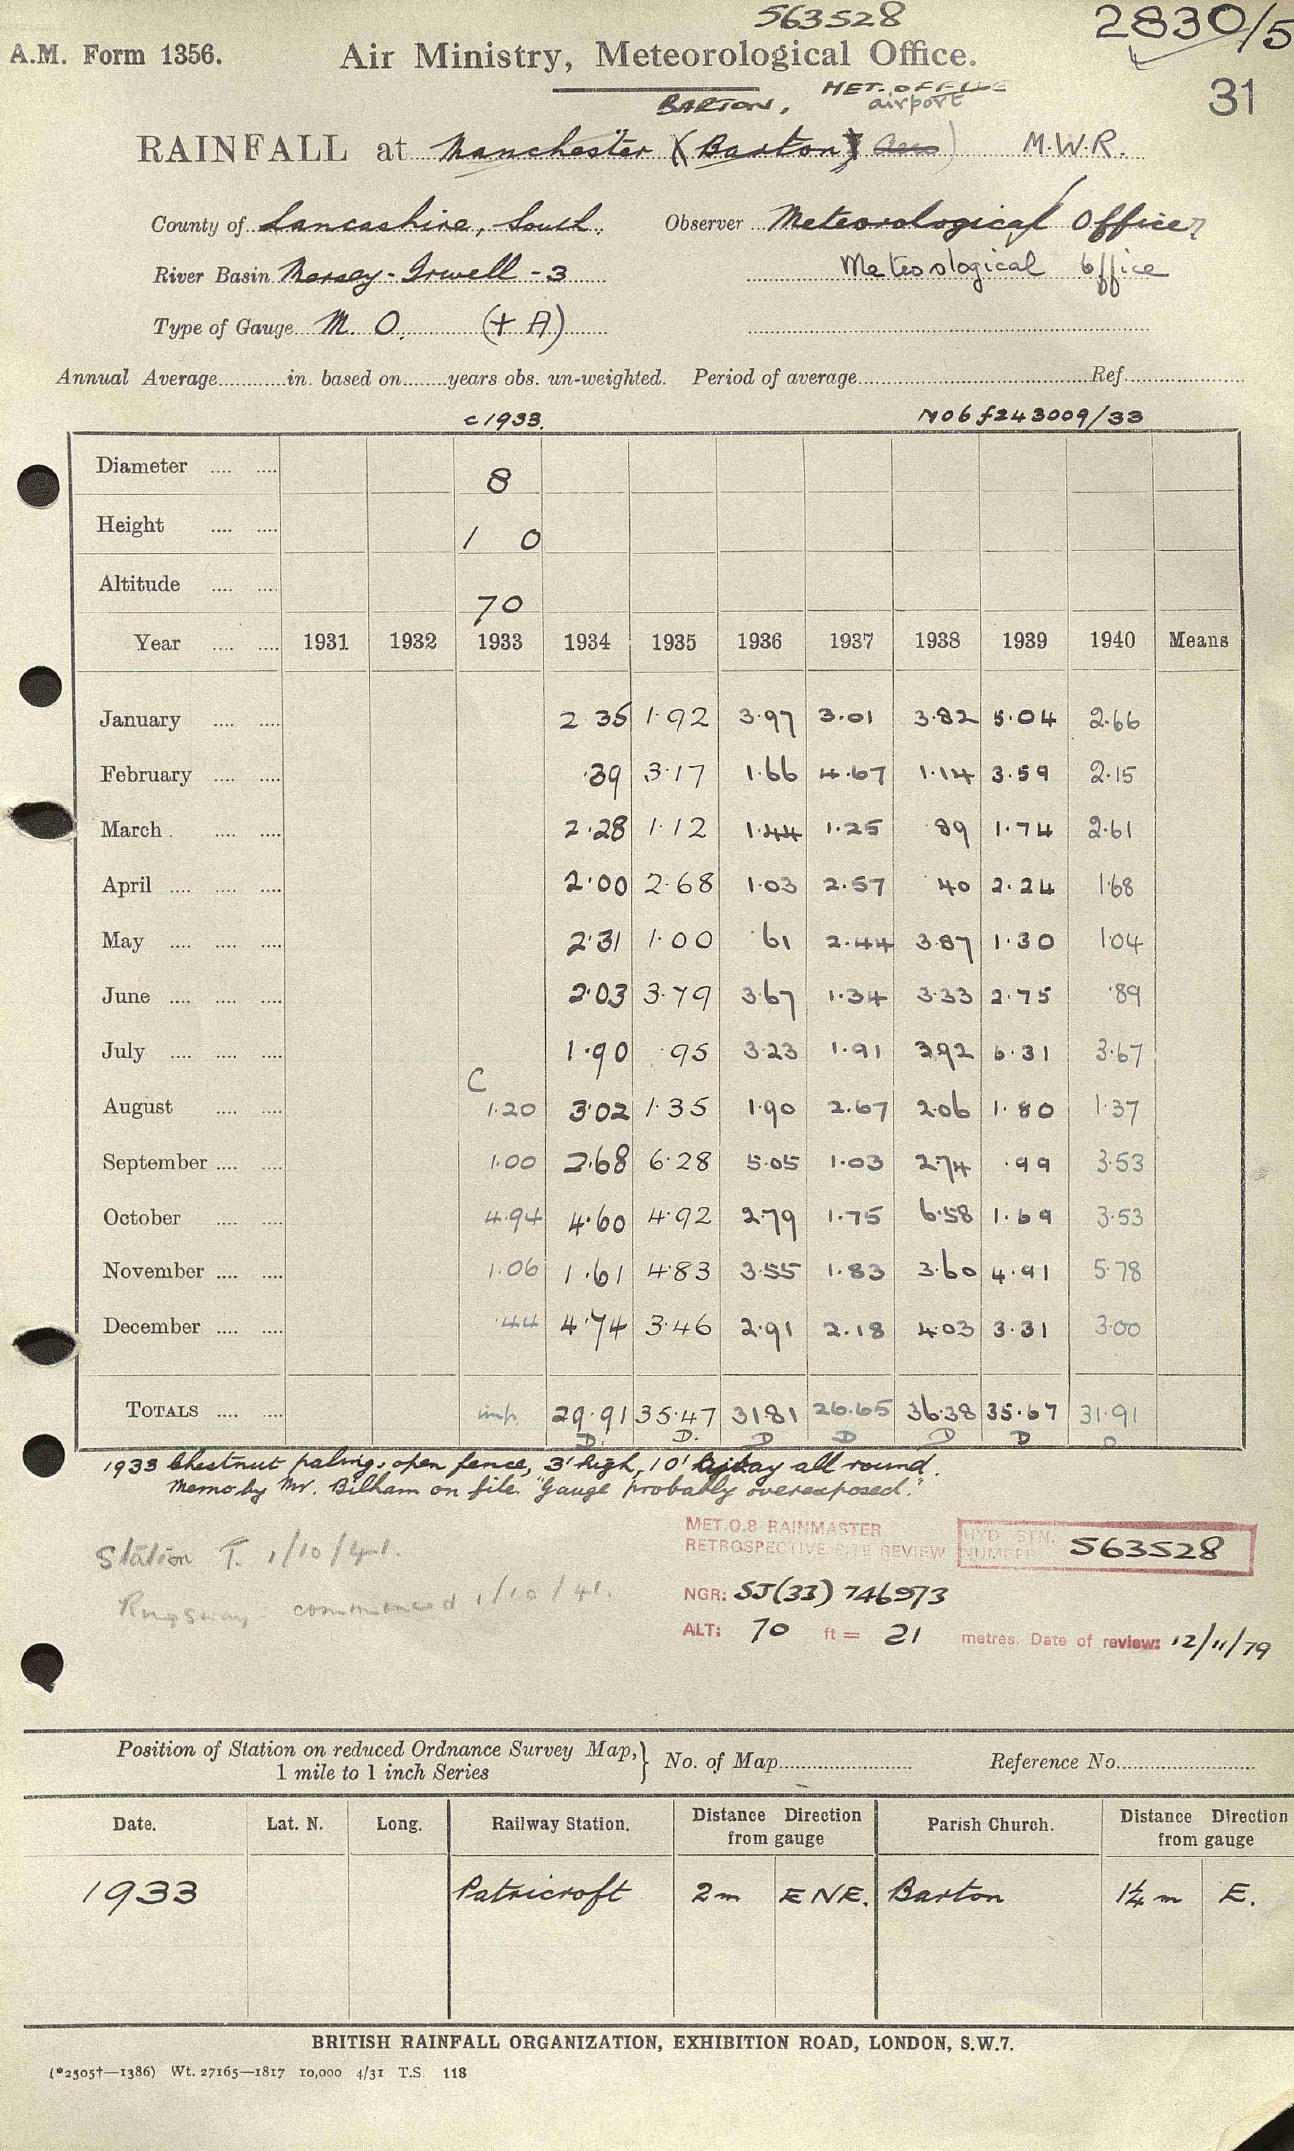 563528
2830/5
A.M. Form 1356. Air Ministry, Meteorological Office.
31
BARTON, MET. OFFICE
airport
RAINFALL at Manchester (Barton) M.W.R.
County of Lancashire, South. Observer Meteorological Office
River Basin Mersey-Irwell-3 Meteorological Office
Type of Gauge M. O. (+ A)
Annual Average in. based on years obs. un-weighted. Period of average Ref
c1933. M06 f243009/33
Diameter 8
Height 1 0
Altitude 70
Year 1931 1932 1933 1934 1935 1936 1937 1938 1939 1940 Means
January 2 35 1.92 3.97 3.01 3.82 5.04 2.66
February .39 3.17 1.66 4.67 1.14 3.59 2.15
March 2.28 1.12 1.44 1.25 .89 1.74 2.61
April 2.00 2.68 1.03 2.57 .40 2.24 1.68
May 2.31 1.00 .61 2.44 3.87 1.30 1.04
June 2.03 3.79 3.67 1.34 3.33 2.75 .89
July 1.90 .95 3.23 1.91 3.92 6.31 3.67
C
August 1.20 3.02 1.35 1.90 2.67 2.06 1.80 1.37
September 1.00 2.68 6.28 5.05 1.03 2.74 .99 3.53
October 4.94 4.60 4.92 2.79 1.75 6.58 1.69 3.53
November 1.06 1.61 4.83 3.55 1.83 3.60 4.91 5.78
December .44 4.74 3.46 2.91 2.18 4.03 3.31 3.00
TOTALS imp. 29.91 35.47 31.81 26.65 36.38 35.67 31.91
D. D. D D D D D
1933 Chestnut paling, open fence, 3' high, 10' away all round.
Memo by Mr. Bilham on file. "Gauge probably overexposed."
MET.O.8 RAINMASTER
RETROSPECTIVE SITE REVIEW
HYD. STN. NUMBER 563528
Station T. 1/10/41.
Ringway commenced 1/10/41.
NGR: SJ(33) 746973
ALT: 70 ft = 21 metres. Date of review: 12/11/79
Position of Station on reduced Ordnance Survey Map, 1 mile to 1 inch Series } No. of Map Reference No.
Date. Lat. N. Long. Railway Station. Distance Direction from gauge Parish Church. Distance Direction from gauge
1933 Patricroft 2m ENE. Barton 1¼ m E.
BRITISH RAINFALL ORGANIZATION, EXHIBITION ROAD, LONDON, S.W.7.
(*2505†—1386) Wt. 27165—1817 10,000 4/31 T.S. 118